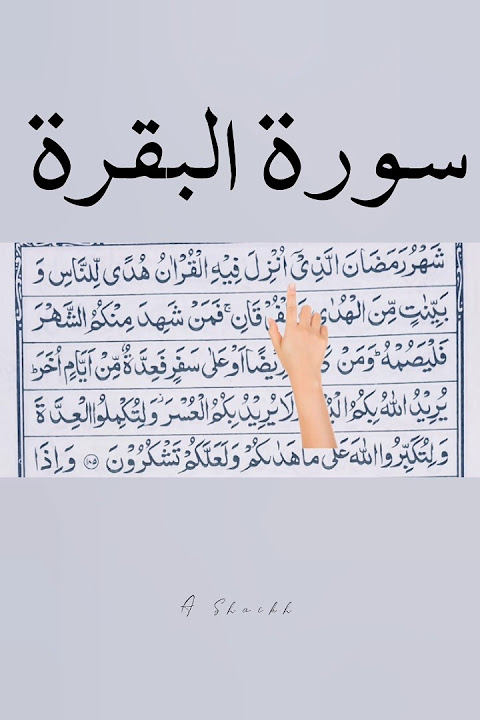 سورة البقرة
شَهْرُ رَمَضَانَ الَّذِیْۤ اُنْزِلَ فِیْهِ الْقُرْاٰنُ هُدًی لِّلنَّاسِ وَ
بَیِّنٰتٍ مِّنَ الْهُدٰی قَانِ ۚ فَمَنْ شَهِدَ مِنْكُمُ الشَّهْرَ
فَلْیَصُمْهُ ؕ وَمَنْ اَوْ عَلٰی سَفَرٍ فَعِدَّةٌ مِّنْ اَیَّامٍ اُخَرَ ؕ
یُرِیْدُ اللّٰهُ بِكُمُ لَا یُرِیْدُ بِكُمُ الْعُسْرَ ؗ وَلِتُكْمِلُوا الْعِدَّةَ
وَلِتُكَبِّرُوا اللّٰهَ عَلٰی مَا هَدٰىكُمْ وَلَعَلَّكُمْ تَشْكُرُوْنَ ﴿۱۸۵﴾ وَاِذَا
A Shaikh